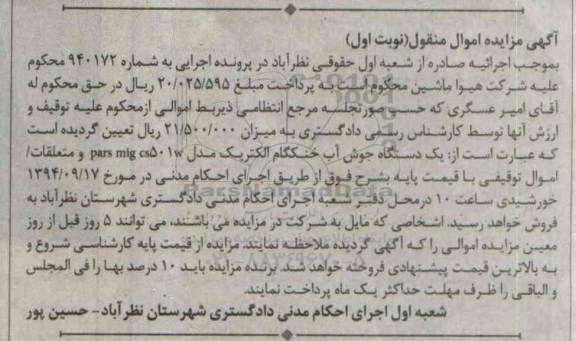 آگهی مزایده اموال منقول(نوبت اول)
بموجب اجرائیه صادره از شعبه اول حقوقی نظرآباد در پرونده اجرایی به شماره ۹۴۰۱۷۲ محکوم
علیه شرکت هیوا ماشین محکوم است به پرداخت مبلغ ۲۰/۰۲۵/۵۹۵ ریال در حق محکوم له
آقای امیر عسگری که حسب صورتجلسه مرجع انتظامی ذیربط اموالی ازمحکوم علیه توقیف و
ارزش آنها توسط کارشناس رسمی دادگستری به میزان ۲۱/۵۰۰/۰۰۰ ریال تعیین گردیده است
که عبارت است از: یک دستگاه جوش آب خنکگام الکتریک مدل pars mig cs۵۰۱w و متعلقات/
اموال توقیفی با قیمت پایه بشرح فوق از طریق اجرای احکام مدنی در مورخ ۱۳۹۴/۰۹/۱۷
خورشیدی ساعت ۱۰ درمحل دفتر شعبه اجرای احکام مدنی دادگستری شهرستان نظرآباد به
فروش خواهد رسید. اشخاصی که مایل به شرکت در مزایده می باشند، می توانند ۵ روز قبل از روز
معین مزایده اموالی را که آگهی گردیده ملاحظه نمایند. مزایده از قیمت پایه کارشناسی شروع و
به بالاترین قیمت پیشنهادی فروخته خواهد شد. برنده مزایده باید ۱۰ درصد بها را فی المجلس
و الباقی را ظرف مهلت حداکثر یک ماه پرداخت نمایند.
شعبه اول اجرای احکام مدنی دادگستری شهرستان نظرآباد- حسین پور